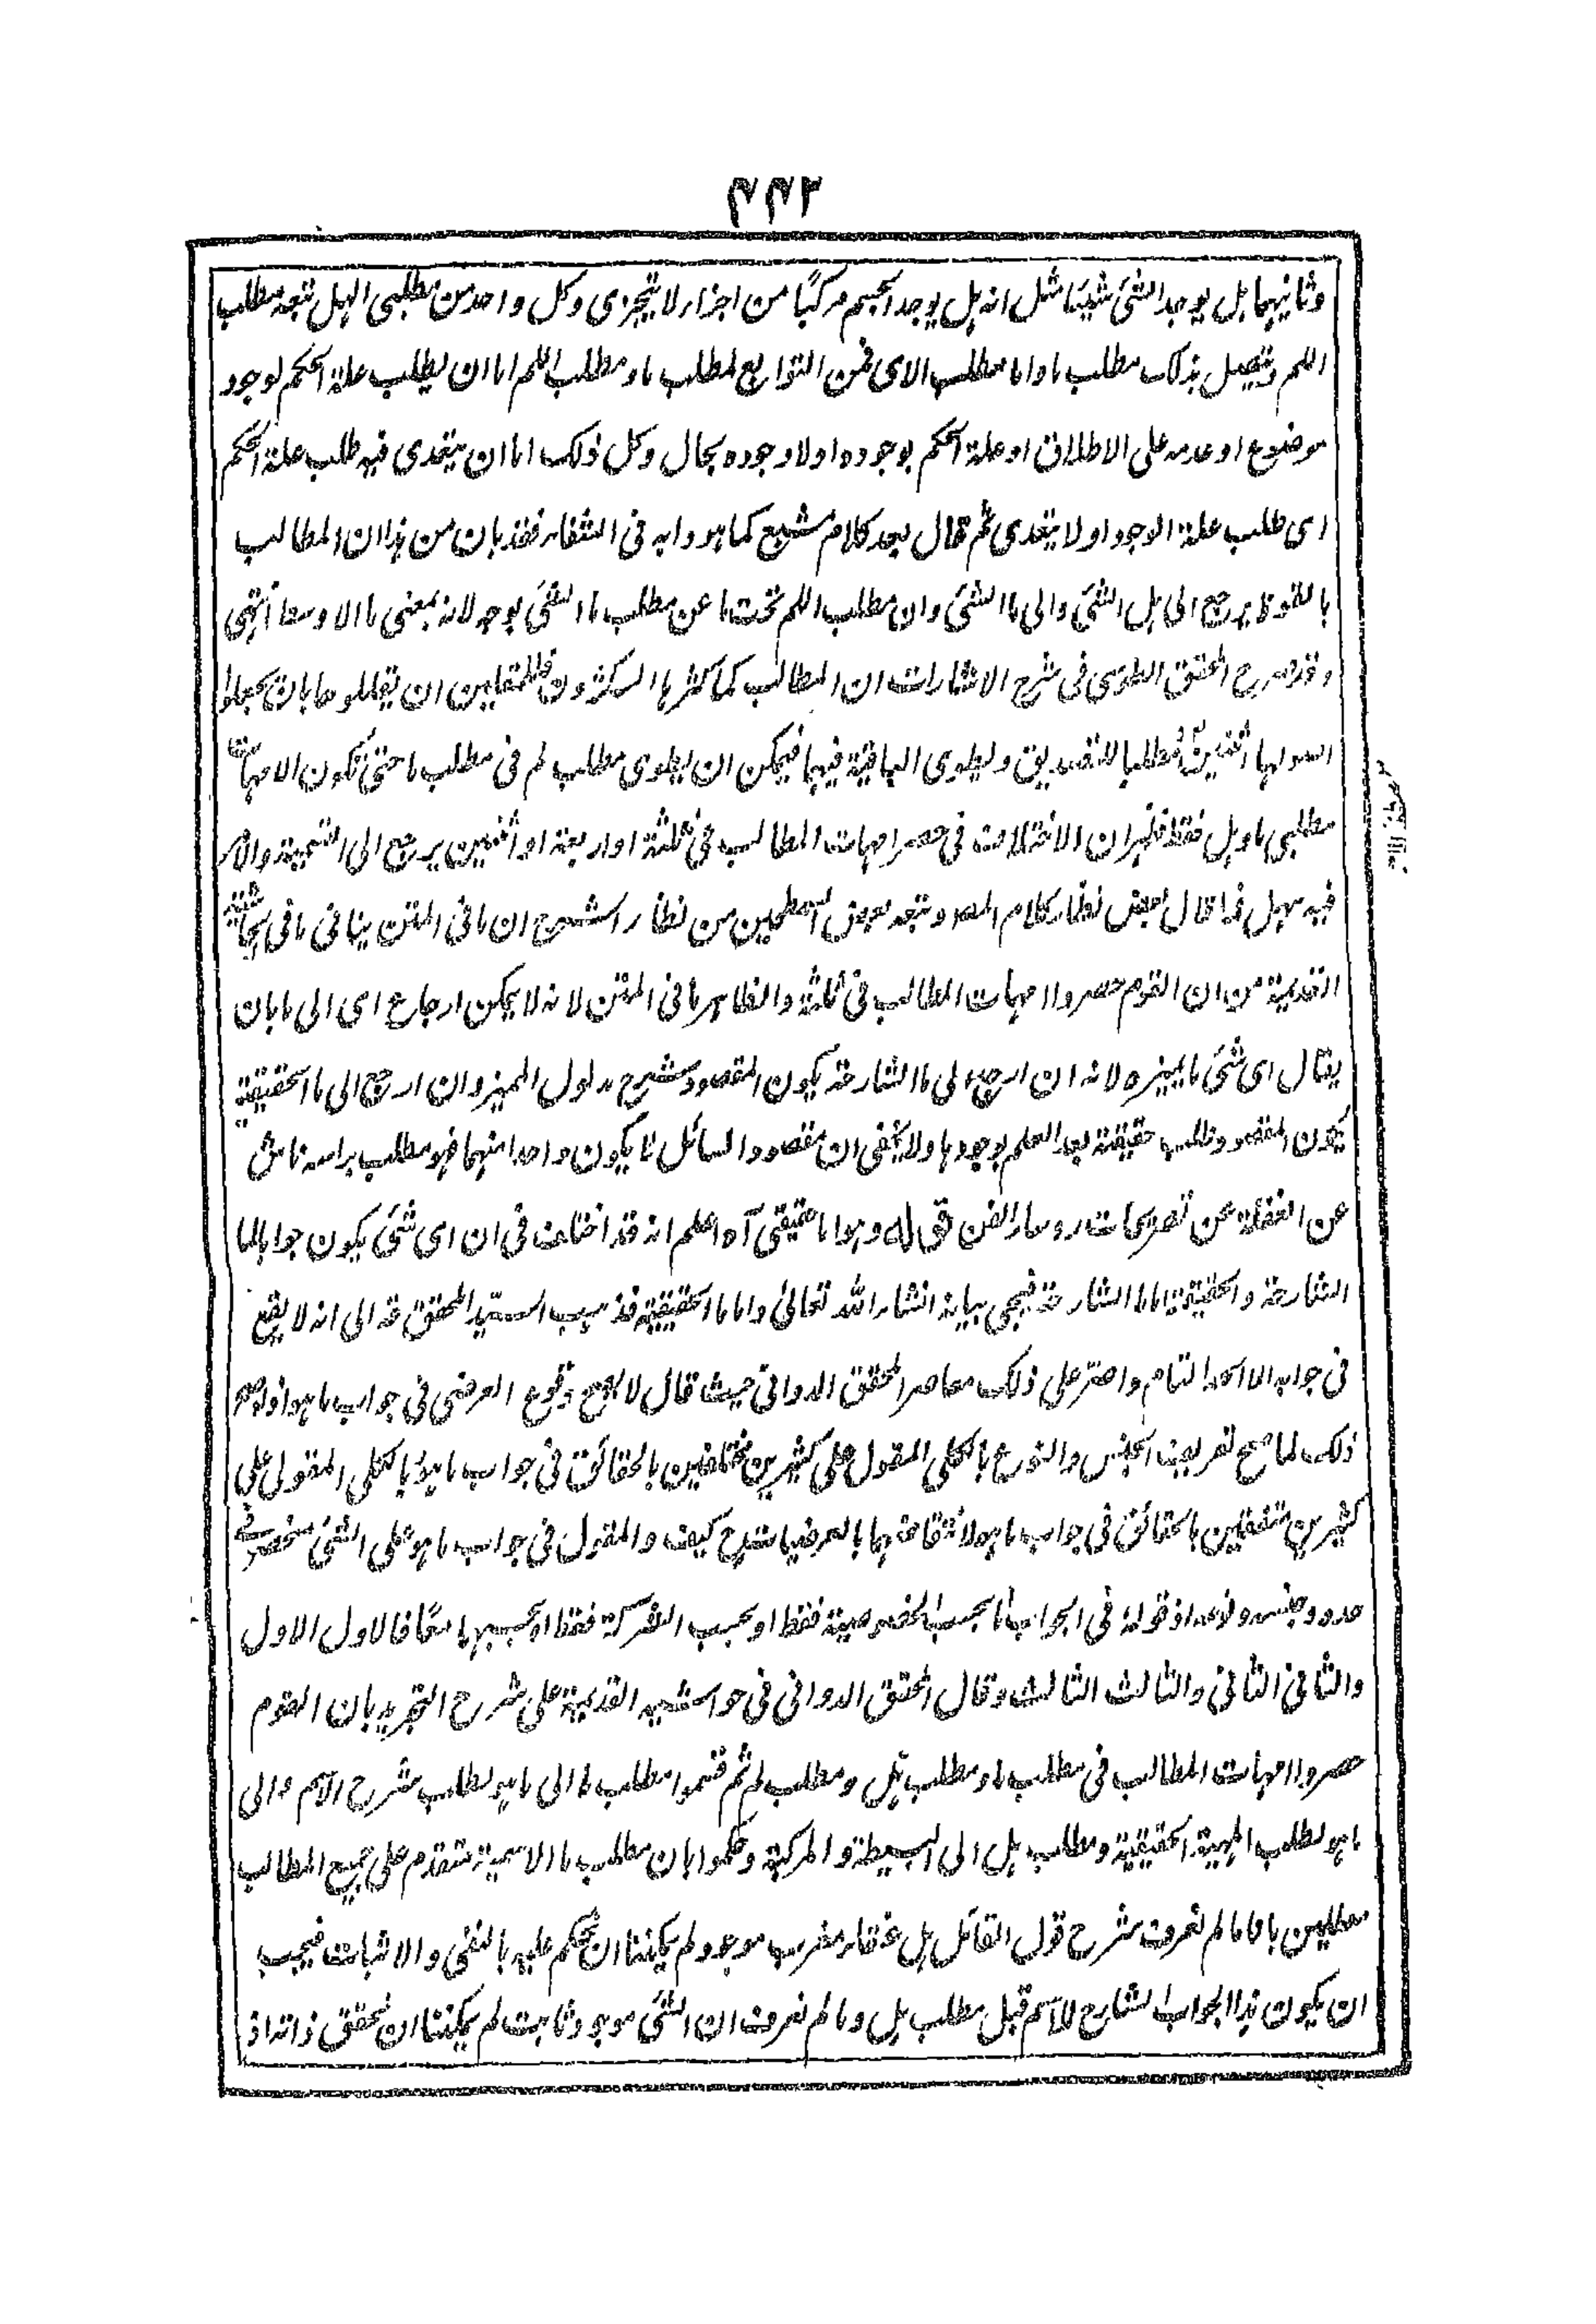 ٤٤٢
وثانيهما هل يوجد الشئ شيئا مثل انه هل يوجد الجسم مركبًا من اجزاء لا يتجزى وكل واحد من مطلبى الهل تتبعه مطلب
اللم ويتصل بذلك مطلب ما واما مطلب الاى فمن التوابع لمطلب ما ومطلب اللم اما ان يطلب علة الحكم لوجود
موضوع او عدمه على الاطلاق او علة الحكم بوجوده او لا وجوده بحال وكل ذلك اما ان يتعدى فيه طلب علة الحكم
اى طلب علة الوجود او لا يتعدى ثم قال بعد كلام مشبع كما هو دابه فى الشفاء فقد بان من هذا ان المطالب
بالقوة يرجع الى هل الشئ والى ما الشئ وان مطلب اللم تحت ما عن مطلب ما الشئ بوجه لانه بمعنى ما الاوسط انتهى
وقد صرح المحقق الطوسى فى شرح الاشارات ان المطالب كما كثرها المكثرون فللمقلين ان يقللوها بان يجعلوا
اصولها اثنين مطلبا للتصديق ويطوى الباقية فيهما فيمكن ان يطوى مطلب لم فى مطلب ما حتى تكون الامهات
مطلبى ما وهل فقط فظهر ان الاختلاف فى حصر امهات المطالب فى ثلثة او اربعة او اثنين يرجع الى التسمية والامر
فيه سهل فما قال بعض نظار كلام المصـ وتبعه بعض من نظار الشرح ان ما فى المتن ينافى ما فى الحاشية
القديمة من ان القوم حصروا امهات المطالب فى ثلثة والظاهر ما فى المتن لانه لا يمكن ارجاع اى الى ما بان
يقال اى شئ ما يميزه لانه ان ارجع الى ما الشارحة يكون المقصود شرح مدلول المميز وان ارجع الى ما الحقيقية
يكون المقصود طلب حقيقته بعد العلم بوجودها ولا يخفى ان مقصود السائل لا يكون واحدا منهما فهو مطلب براسه ناش
عن الغفلة عن تصريحات روساء الفن قوله وهو اما حقيقى آه اعلم انه قد اختلف فى ان اى شئ يكون جوابا لما
الشارحة والحقيقية اما ما الشارحة فيجئ بيانه انشاء الله تعالى واما ما الحقيقية فذهب السيد المحقق قه الى انه لا يقع
فى جوابه الا الحد التام واصر على ذلك معاصر المحقق الدوانى حيث قال لا يصح وقوع العرضى فى جواب ما هو اذ لو صح
ذلك لما صح تعريف الجنس والنوع بالكلى المقول على كثيرين مختلفين بالحقائق فى جواب ما هو وبالكلى المقول على
كثيرين متفقين بالحقائق فى جواب ما هو لانتقاضهما بالعرضيات كيف والمقول فى جواب ما هو على الشئ منحصر فى
حد وجنس ونوع اذ قوله فى الجواب اما بحسب الخصوصية فقط او بحسب الشركة فقط او بحسبهما معًا فالاول الاول
والثانى الثانى والثالث الثالث وقال المحقق الدوانى فى حواشيه القديمة على شرح التجريد بان القوم
حصروا امهات المطالب فى مطلب ما ومطلب هل ومطلب لم ثم قسموا مطلب ما الى ما هو لطلب شرح الاسم والى
ما هو لطلب المهية الحقيقية ومطلب هل الى البسيطة والمركبة وحكموا بان مطلب ما الاسمية متقدم على جميع المطالب
معللين بانا ما لم نعرف شرح قول القائل هل عنقاء مغرب موجود لم يمكننا ان نحكم عليه بالنفى والاثبات فيجب
ان يكون هذا الجواب الشارح للاسم قبل مطلب هل وما لم نعرف ان الشئ موجود ثابت لم يمكننا ان نحقق ذاته اذ